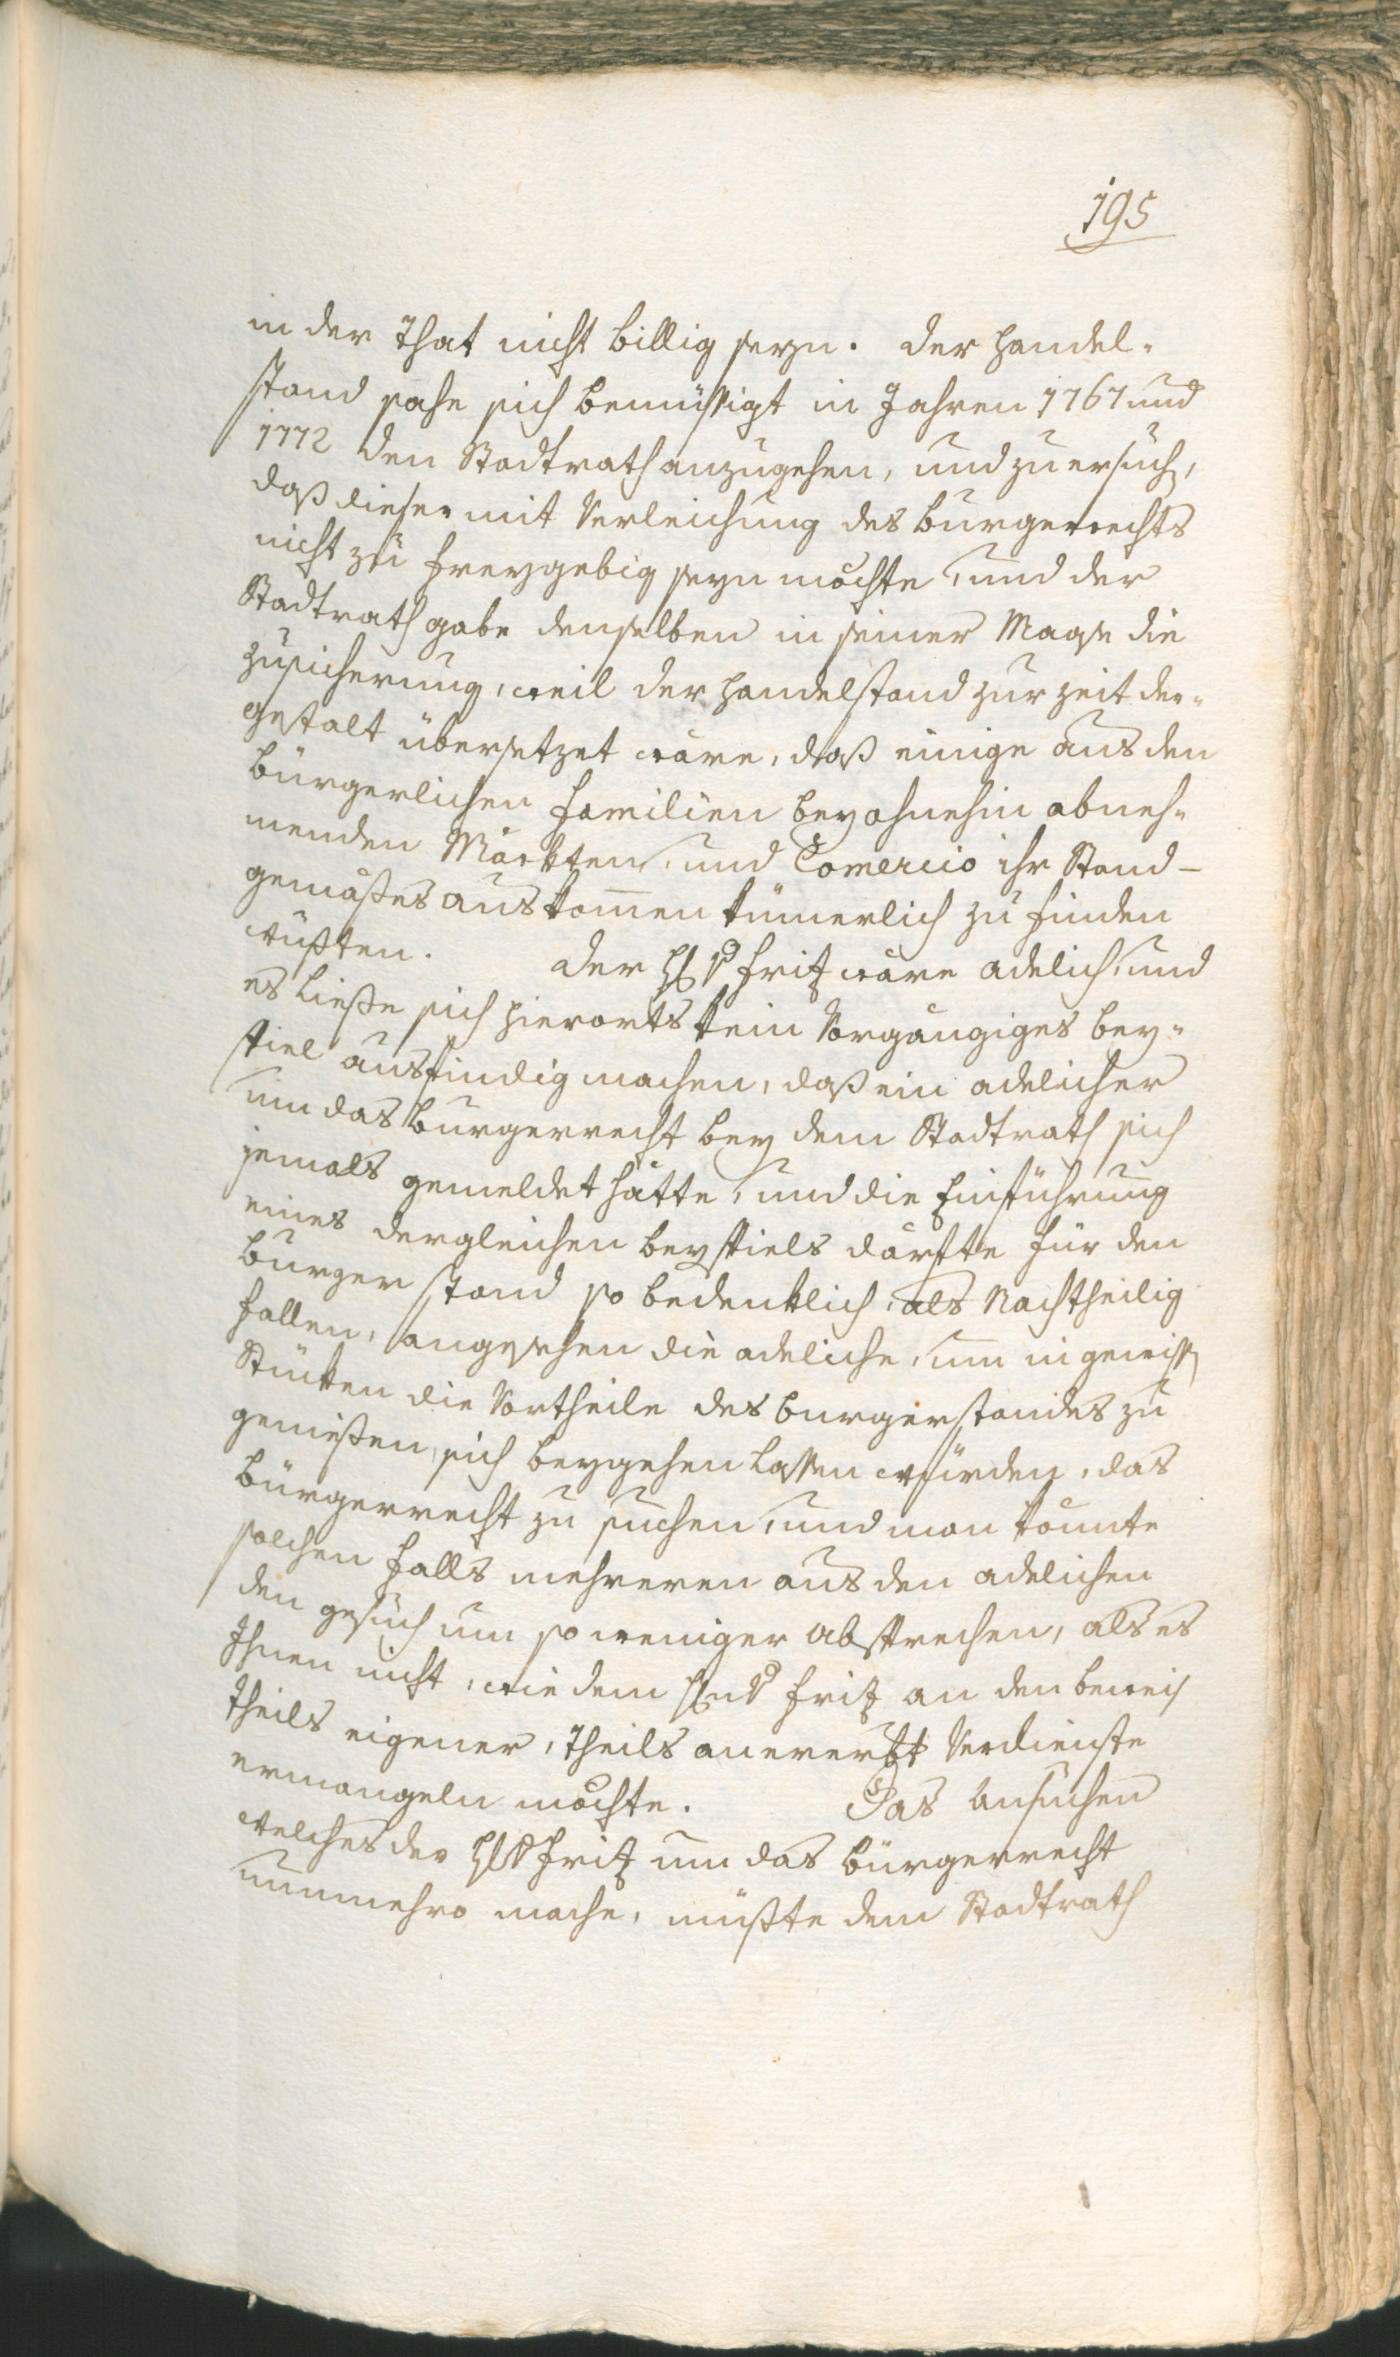 195
in der That nicht billig seyn. der Handel-
stand sahe sich bemüssigt in Jahren 1767 und
1772 den Stadtrath anzugehen, und zu ersuch,
daß dieser mit Verleichung des burgerrechts
nicht zu freygebig seyn möchte, und der
Stadtrath gabe denselben in seiner Mase die
zusicherung, weil der Handelstand zur zeit der-
gestalt übersetzet wäre, daß einige aus den
bürgerlichen familien bey ohnehin abneh-
menden Märkten, und Comercio ihr Stand-
gemäßes auskommen kümerlich zu finden
wüßten. der H: v fritz wäre adelich, und
es ließe sich hierorts kein Vorgängiges bey-
spiel ausfindig machen, daß ein adelicher
um das burgerrecht bey dem Stadtrath sich
jemals gemeldet hätte, und die Einführung
eines dergleichen beyspiels därfte für den
burger stand so bedenklich, als Nachtheilig
fallen, angesehen die adeliche, um in gewiss
Stücken die Vortheile des burgerstandes zu
genießen, sich beygehen lassen würden, das
bürgerrecht zu suchen, und man könnte
solchen falls mehreren aus den adelichen
den gesuch um so weniger absprechen, als es
Ihnen nicht, wie dem H: v fritz an den beweis
theils eigener, theils anererbt Verdienste
ermangeln möchte. Das Ansuchen
welches der H: v fritz um das bürgerrecht
nunmehro mache, müßte dem Stadtrath